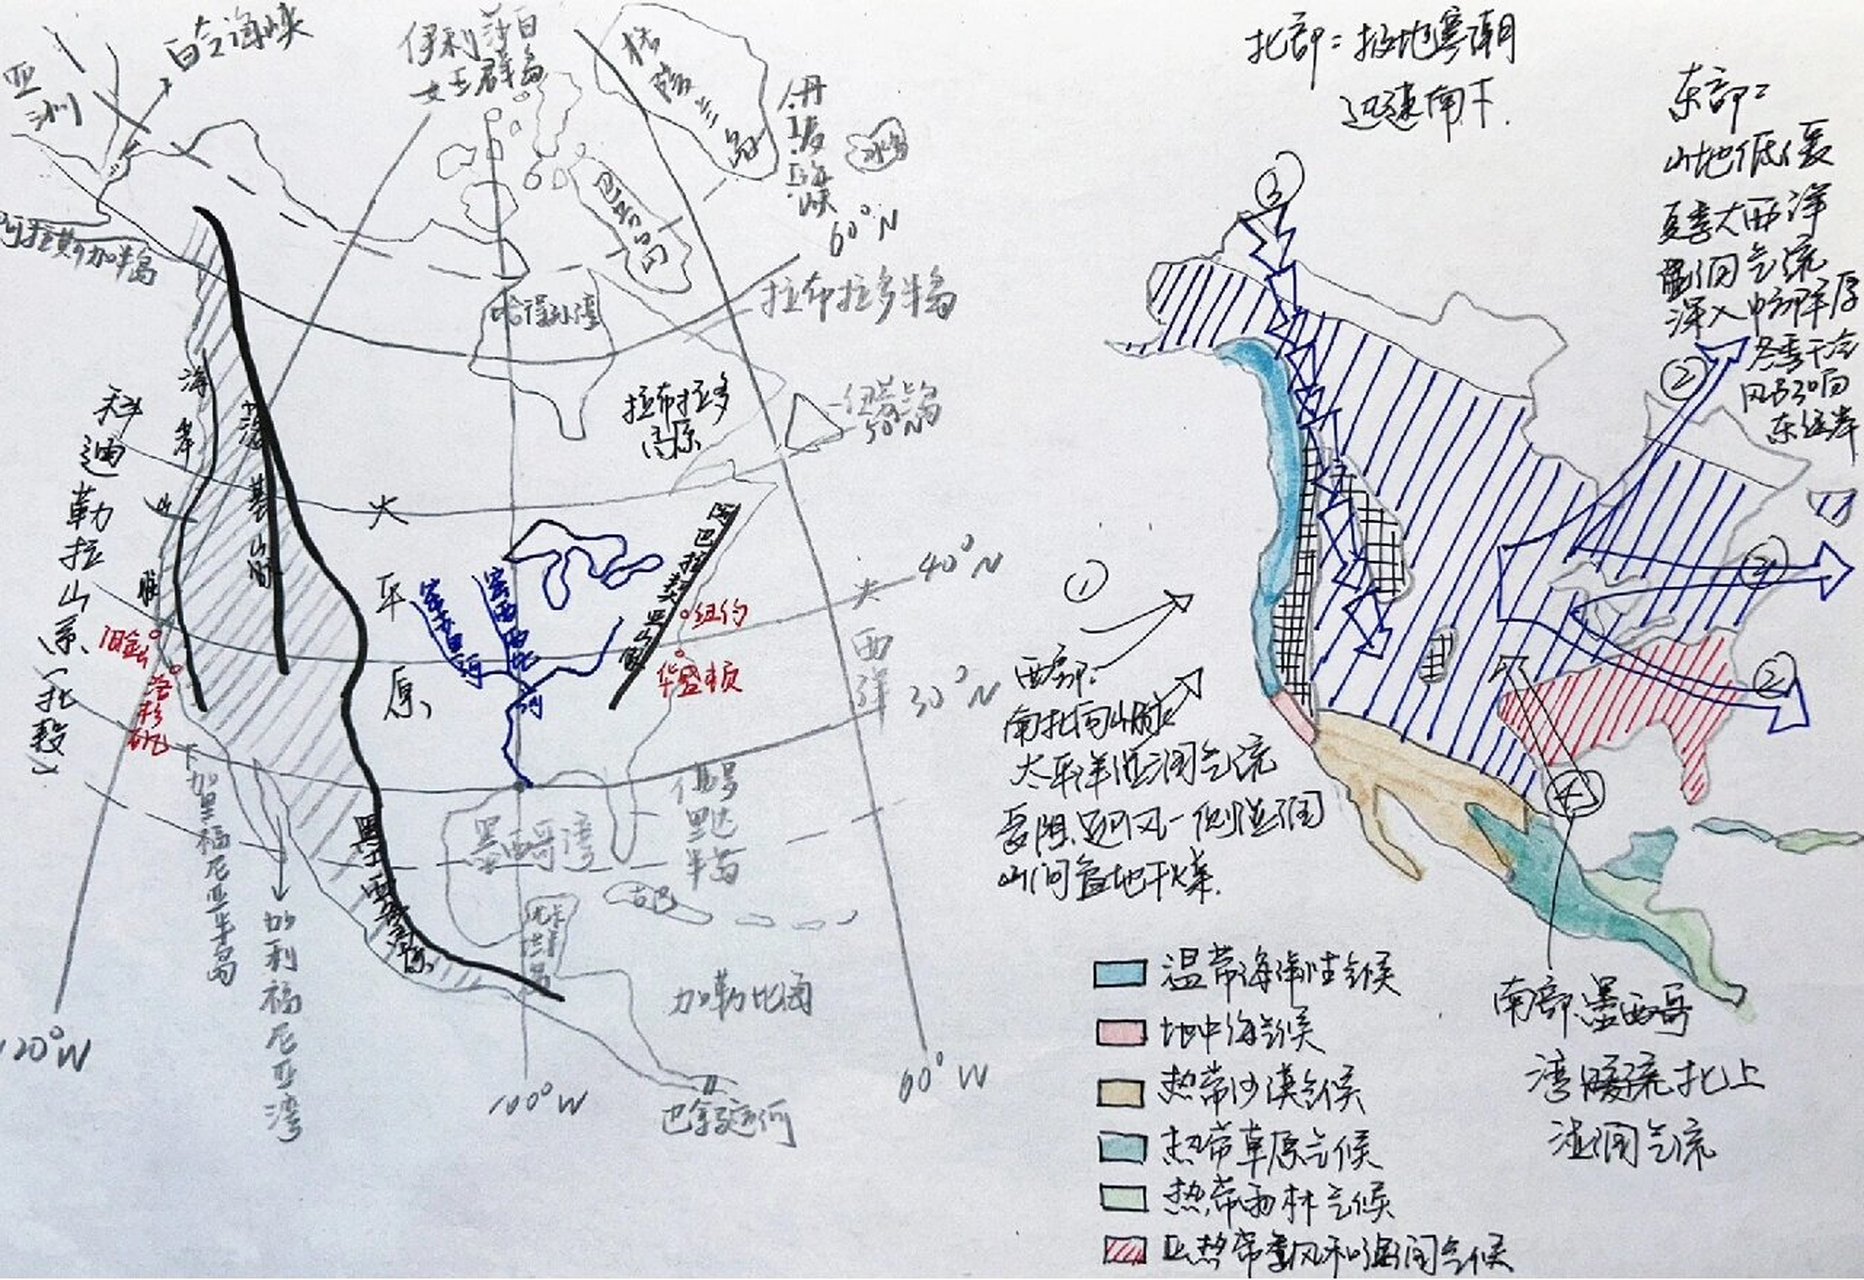 白令海峡
亚洲
伊利莎白
女王群岛
格陵兰岛
丹麦海峡
冰岛
巴芬岛
60°N
阿拉斯加半岛
哈得孙湾
拉布拉多半岛
拉布拉多
高原
纽芬兰岛
50°N
科迪勒拉山系(北段)
海岸山脉
落基山脉
大平原
密苏里河
密西西比河
阿巴拉契亚山脉
纽约
华盛顿
旧金山
洛杉矶
40°N
大西洋
30°N
下加里福尼亚半岛
加利福尼亚湾
墨西哥高原
墨西哥湾
佛罗里达半岛
古巴
尤卡坦半岛
加勒比海
巴拿马运河
120°W
100°W
60°W
北部:极地寒潮
迅速南下.
东部:
山地低缓
夏季大西洋
湿润气流
深入中部平原
冬季干冷
风可影响
东海岸
③
②
③
②
①
④
西部:
南北向山脉
太平洋湿润气流
受阻.迎风一侧湿润
山间盆地干燥.
南部.墨西哥
湾暖流北上
湿润气流
温带海洋性气候
地中海气候
热带沙漠气候
热带草原气候
热带雨林气候
亚热带季风和湿润气候